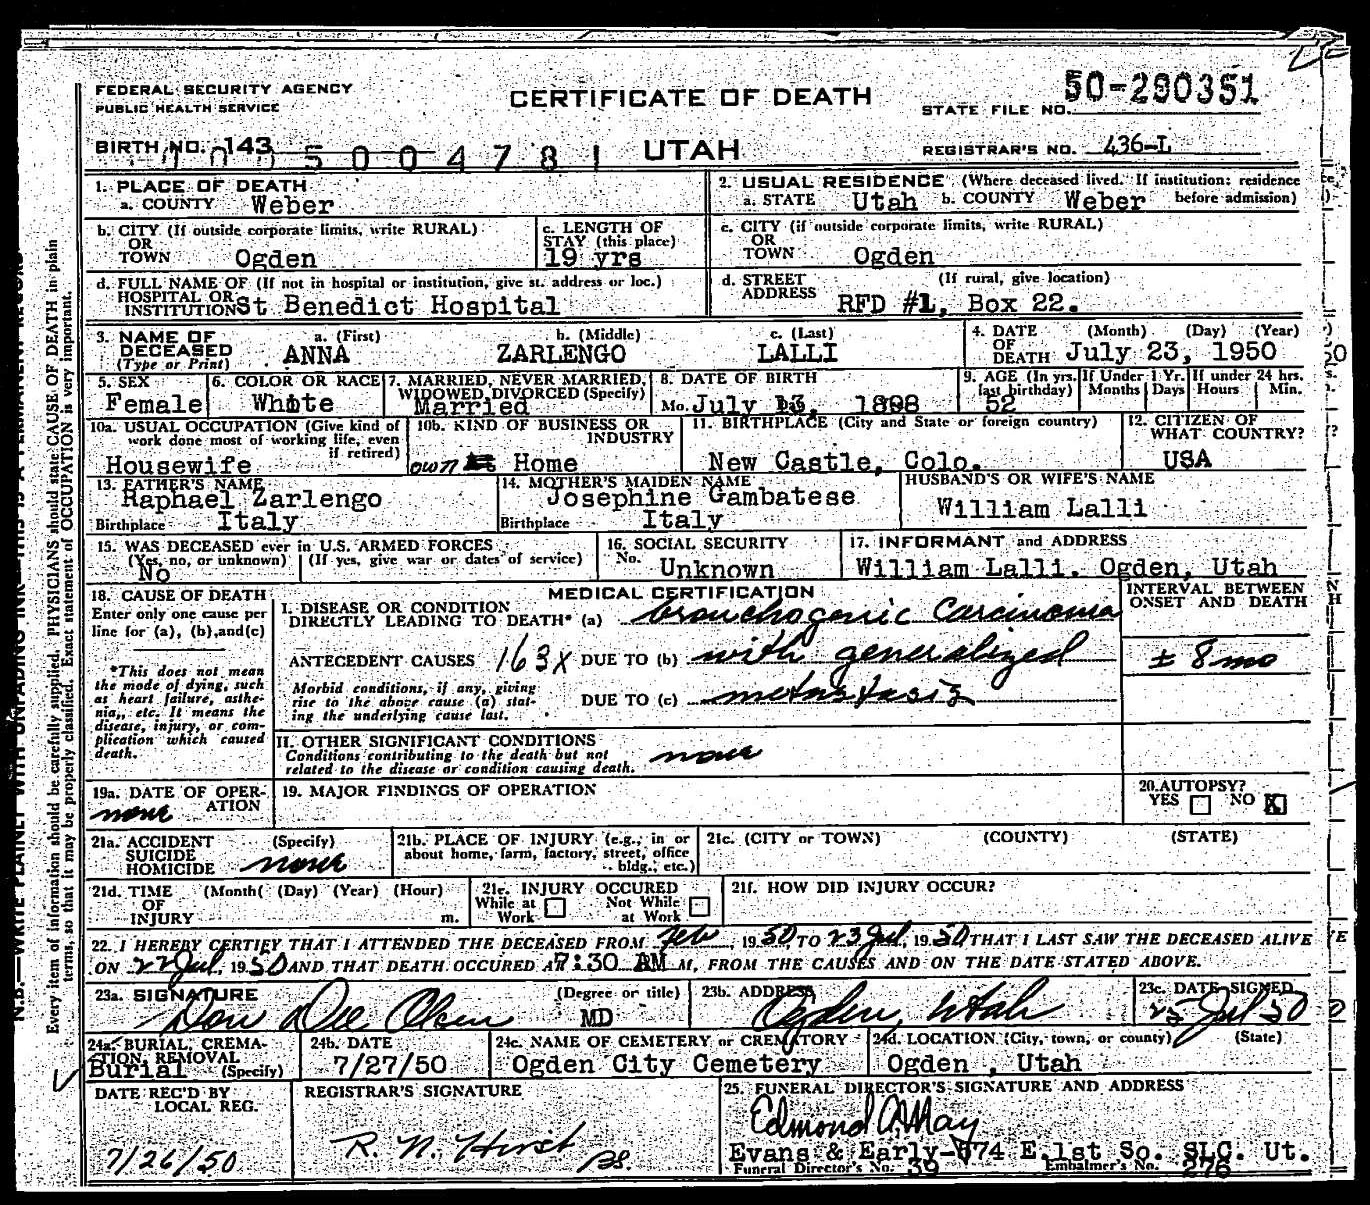 FEDERAL SECURITY AGENCY
PUBLIC HEALTH SERVICE
CERTIFICATE OF DEATH
STATE FILE NO. 50-290351
BIRTH NO. 143
500 4781
UTAH
REGISTRAR'S NO. 436-L
1. PLACE OF DEATH
a. COUNTY Weber
2. USUAL RESIDENCE (Where deceased lived. If institution: residence before admission)
a. STATE Utah b. COUNTY Weber
b. CITY (If outside corporate limits, write RURAL)
OR
TOWN Ogden
c. LENGTH OF
STAY (this place)
19 yrs
c. CITY (if outside corporate limits, write RURAL)
OR
TOWN Ogden
d. FULL NAME OF (If not in hospital or institution, give st. address or loc.)
HOSPITAL OR
INSTITUTION St Benedict Hospital
d. STREET (If rural, give location)
ADDRESS RFD #1, Box 22.
3. NAME OF DECEASED
(Type or Print)
a. (First) b. (Middle) c. (Last)
ANNA ZARLENGO LALLI
4. DATE OF DEATH (Month) (Day) (Year)
July 23, 1950
5. SEX
Female
6. COLOR OR RACE
White
7. MARRIED, NEVER MARRIED,
WIDOWED, DIVORCED (Specify)
Married
8. DATE OF BIRTH
Mo. July 13, 1898
9. AGE (In yrs. last birthday)
52
If Under 1 Yr.
Months Days
If under 24 hrs.
Hours Min.
10a. USUAL OCCUPATION (Give kind of
work done most of working life, even
if retired)
Housewife
10b. KIND OF BUSINESS OR
INDUSTRY
own Home
11. BIRTHPLACE (City and State or foreign country)
New Castle, Colo.
12. CITIZEN OF
WHAT COUNTRY?
USA
13. FATHER'S NAME
Raphael Zarlengo
Birthplace Italy
14. MOTHER'S MAIDEN NAME
Josephine Gambatese
Birthplace Italy
HUSBAND'S OR WIFE'S NAME
William Lalli
15. WAS DECEASED ever in U.S. ARMED FORCES
(Yes, no, or unknown) (If yes, give war or dates of service)
No
16. SOCIAL SECURITY
No. Unknown
17. INFORMANT and ADDRESS
William Lalli. Ogden, Utah
18. CAUSE OF DEATH
Enter only one cause per
line for (a), (b), and (c)
*This does not mean
the mode of dying, such
as heart failure, asthe-
nia,, etc. It means the
disease, injury, or com-
plication which caused
death.
MEDICAL CERTIFICATION
INTERVAL BETWEEN
ONSET AND DEATH
I. DISEASE OR CONDITION
DIRECTLY LEADING TO DEATH* (a) bronchogenic carcinoma
ANTECEDENT CAUSES 163X DUE TO (b) with generalized
± 8 mo
Morbid conditions, if any, giving
rise to the above cause (a) stat-
ing the underlying cause last.
DUE TO (c) metastasis
II. OTHER SIGNIFICANT CONDITIONS
Conditions contributing to the death but not
related to the disease or condition causing death.
none
19a. DATE OF OPER-
ATION
none
19. MAJOR FINDINGS OF OPERATION
20. AUTOPSY?
YES NO X
21a. ACCIDENT (Specify)
SUICIDE
HOMICIDE none
21b. PLACE OF INJURY (e.g., in or
about home, farm, factory, street, office
bldg., etc.)
21c. (CITY or TOWN) (COUNTY) (STATE)
21d. TIME (Month( (Day) (Year) (Hour)
OF
INJURY m.
21e. INJURY OCCURED
While at Work
Not While at Work
21f. HOW DID INJURY OCCUR?
22. I HEREBY CERTIFY THAT I ATTENDED THE DECEASED FROM Feb, 1950 TO 23 Jul, 1950 THAT I LAST SAW THE DECEASED ALIVE
ON 22 Jul, 1950 AND THAT DEATH OCCURED AT 7:30 AM M, FROM THE CAUSES AND ON THE DATE STATED ABOVE.
23a. SIGNATURE (Degree or title)
Don Dee Olsen MD
23b. ADDRESS
Ogden, Utah
23c. DATE SIGNED
25 Jul 50
24a. BURIAL, CREMA-
TION, REMOVAL
Burial (Specify)
24b. DATE
7/27/50
24c. NAME OF CEMETERY or CREMATORY
Ogden City Cemetery
24d. LOCATION (City, town, or county) (State)
Ogden, Utah
DATE REC'D BY
LOCAL REG.
7/26/50
REGISTRAR'S SIGNATURE
R. N. Hirst
25. FUNERAL DIRECTOR'S SIGNATURE AND ADDRESS
Edmond A May
Evans & Early-574 E. 1st So. SLC. Ut.
Funeral Director's No. 39 Embalmer's No. 276
N.B.—WRITE PLAINLY WITH UNFADING INK—THIS IS A PERMANENT RECORD
Every item of information should be carefully supplied. PHYSICIANS should state CAUSE OF DEATH in plain
terms, so that it may be properly classified. Exact statement of OCCUPATION is very important.